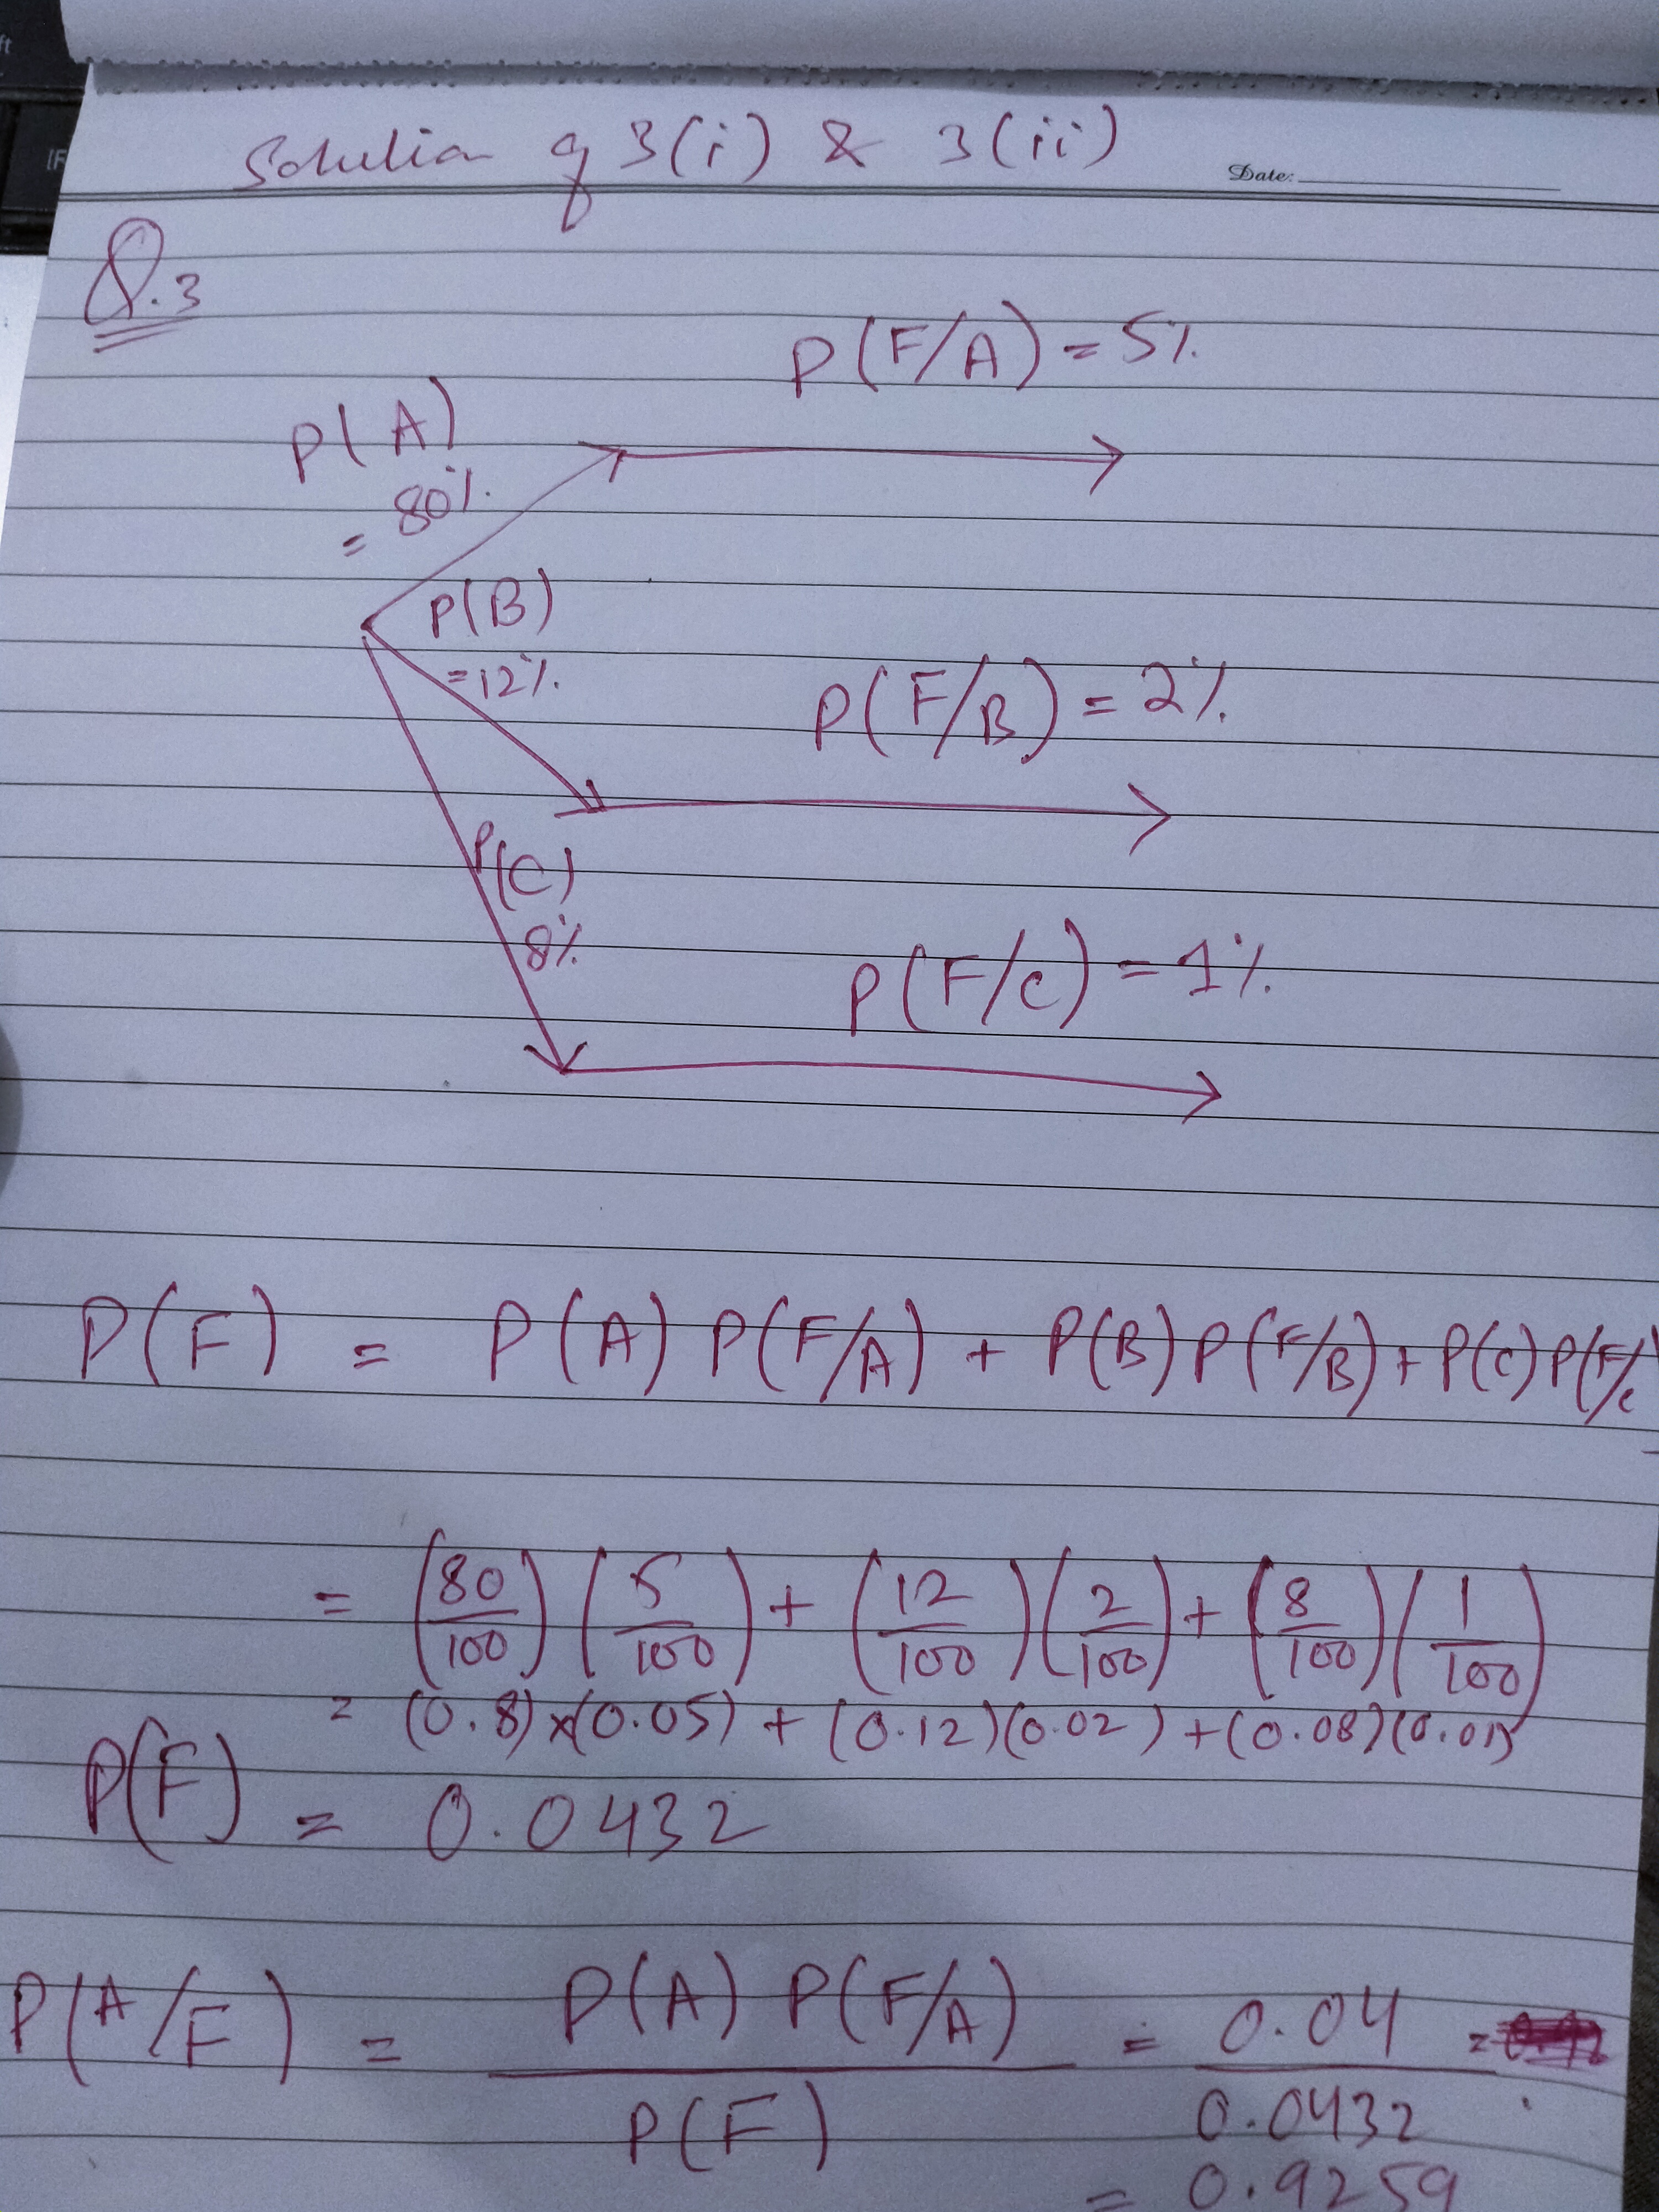 ft
Solution of 3(i) & 3(ii)
Date:
Q.3
P(F/A) = 5%
P(A)
= 80%
P(B)
=12%
P(F/B) = 2%
P(C)
8%
P(F/C) = 1%
P(F) = P(A) P(F/A) + P(B) P(F/B) + P(C) P(F/C
= (80/100) (5/100) + (12/100) (2/100) + (8/100) (1/100)
= (0.8)×(0.05) + (0.12)(0.02) + (0.08)(0.01)
P(F) = 0.0432
P(A/F) = P(A) P(F/A) / P(F) = 0.04 / 0.0432 =
= 0.9259